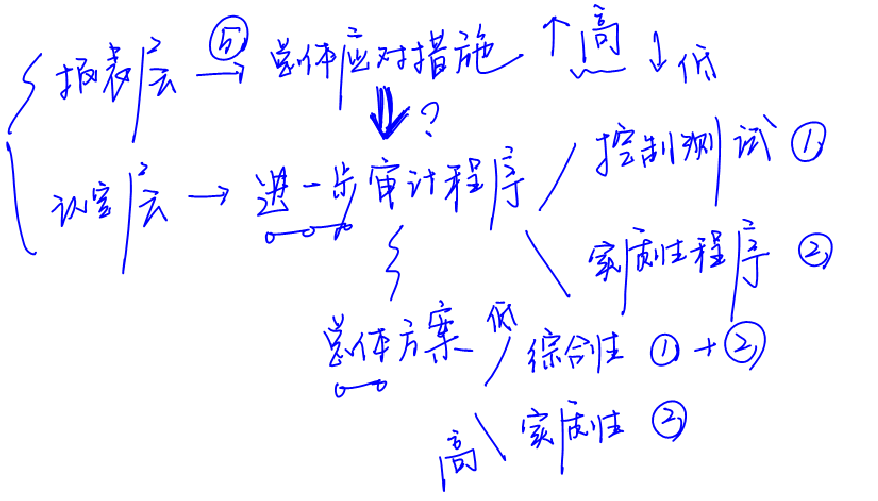 报表层 → ⑤ 总体应对措施 ↑高 ↓低
⇓ ?
认定层 → 进一步审计程序 控制测试 ①
实质性程序 ②
总体方案 低 综合性 ① + ②
高 实质性 ②